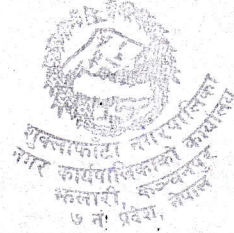 शुक्लाफाँटा नगरपालिका
नगर कार्यपालिकाको कार्यालय
झलारी, कञ्चनपुर
७ नं. प्रदेश, नेपाल